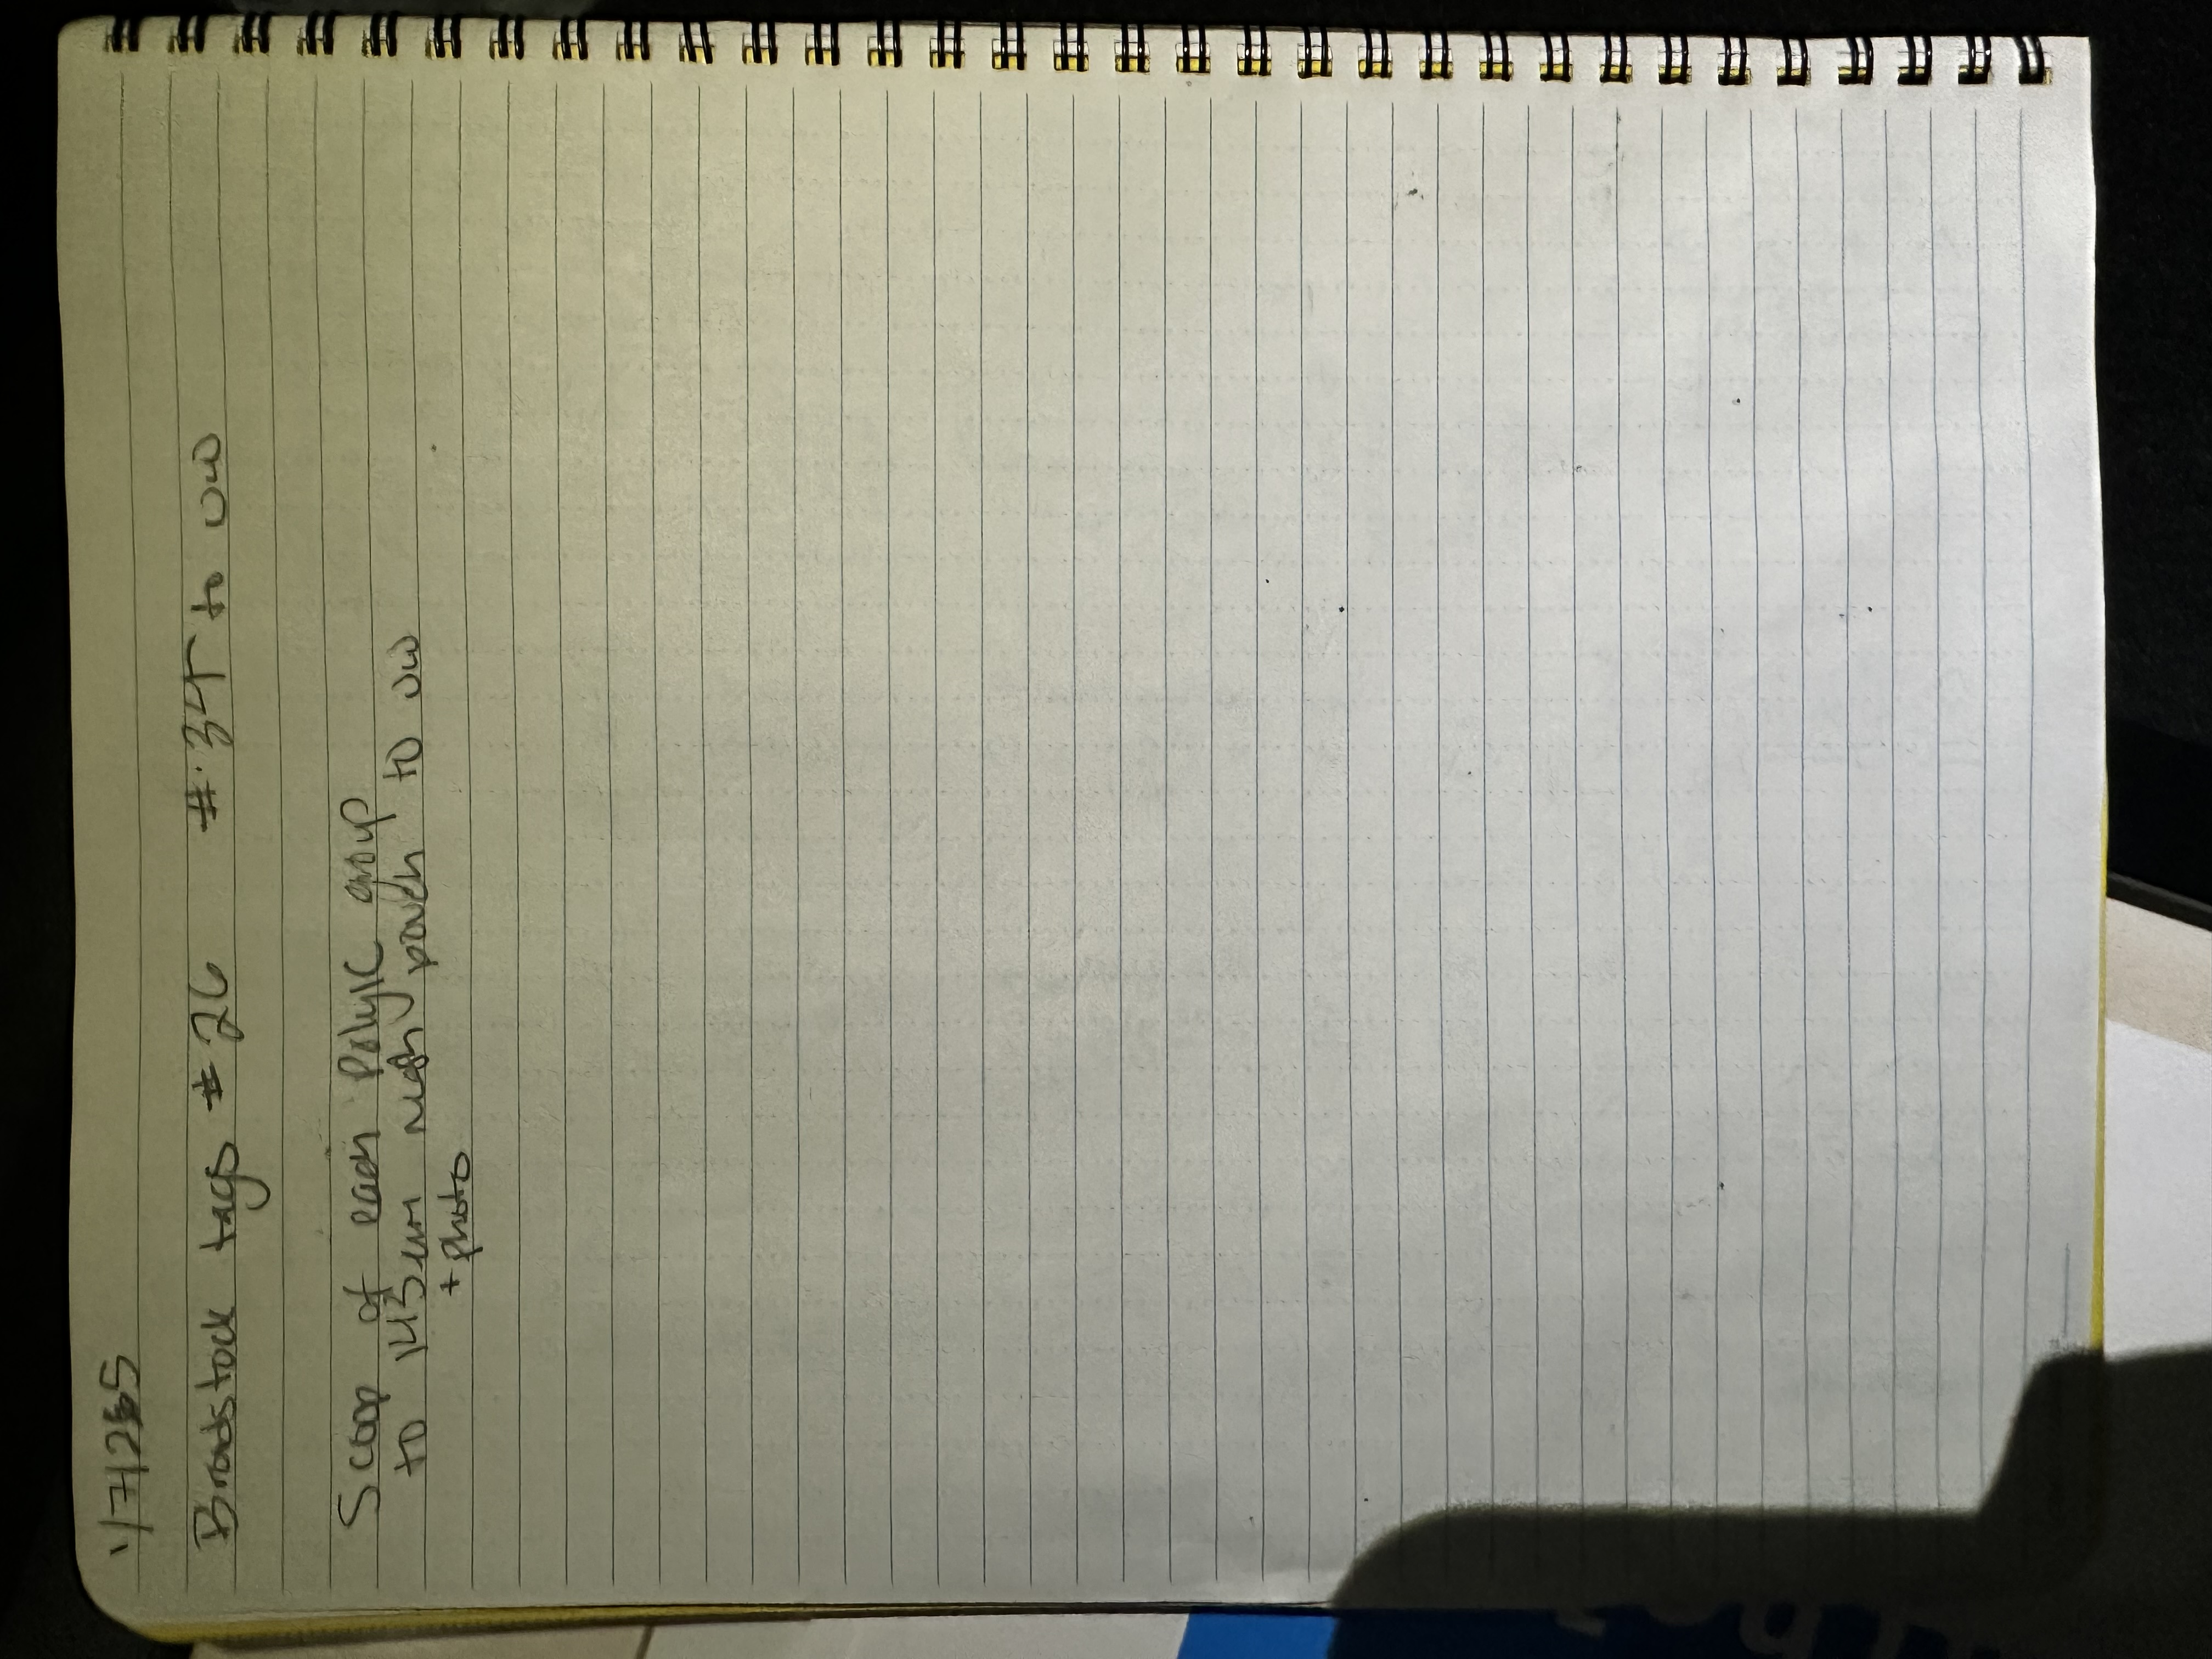 1/7/25
Broodstock tags #26 #34 to UW
Scoop of each PolyIC group
to 143um mesh pouch to UW
+ photo